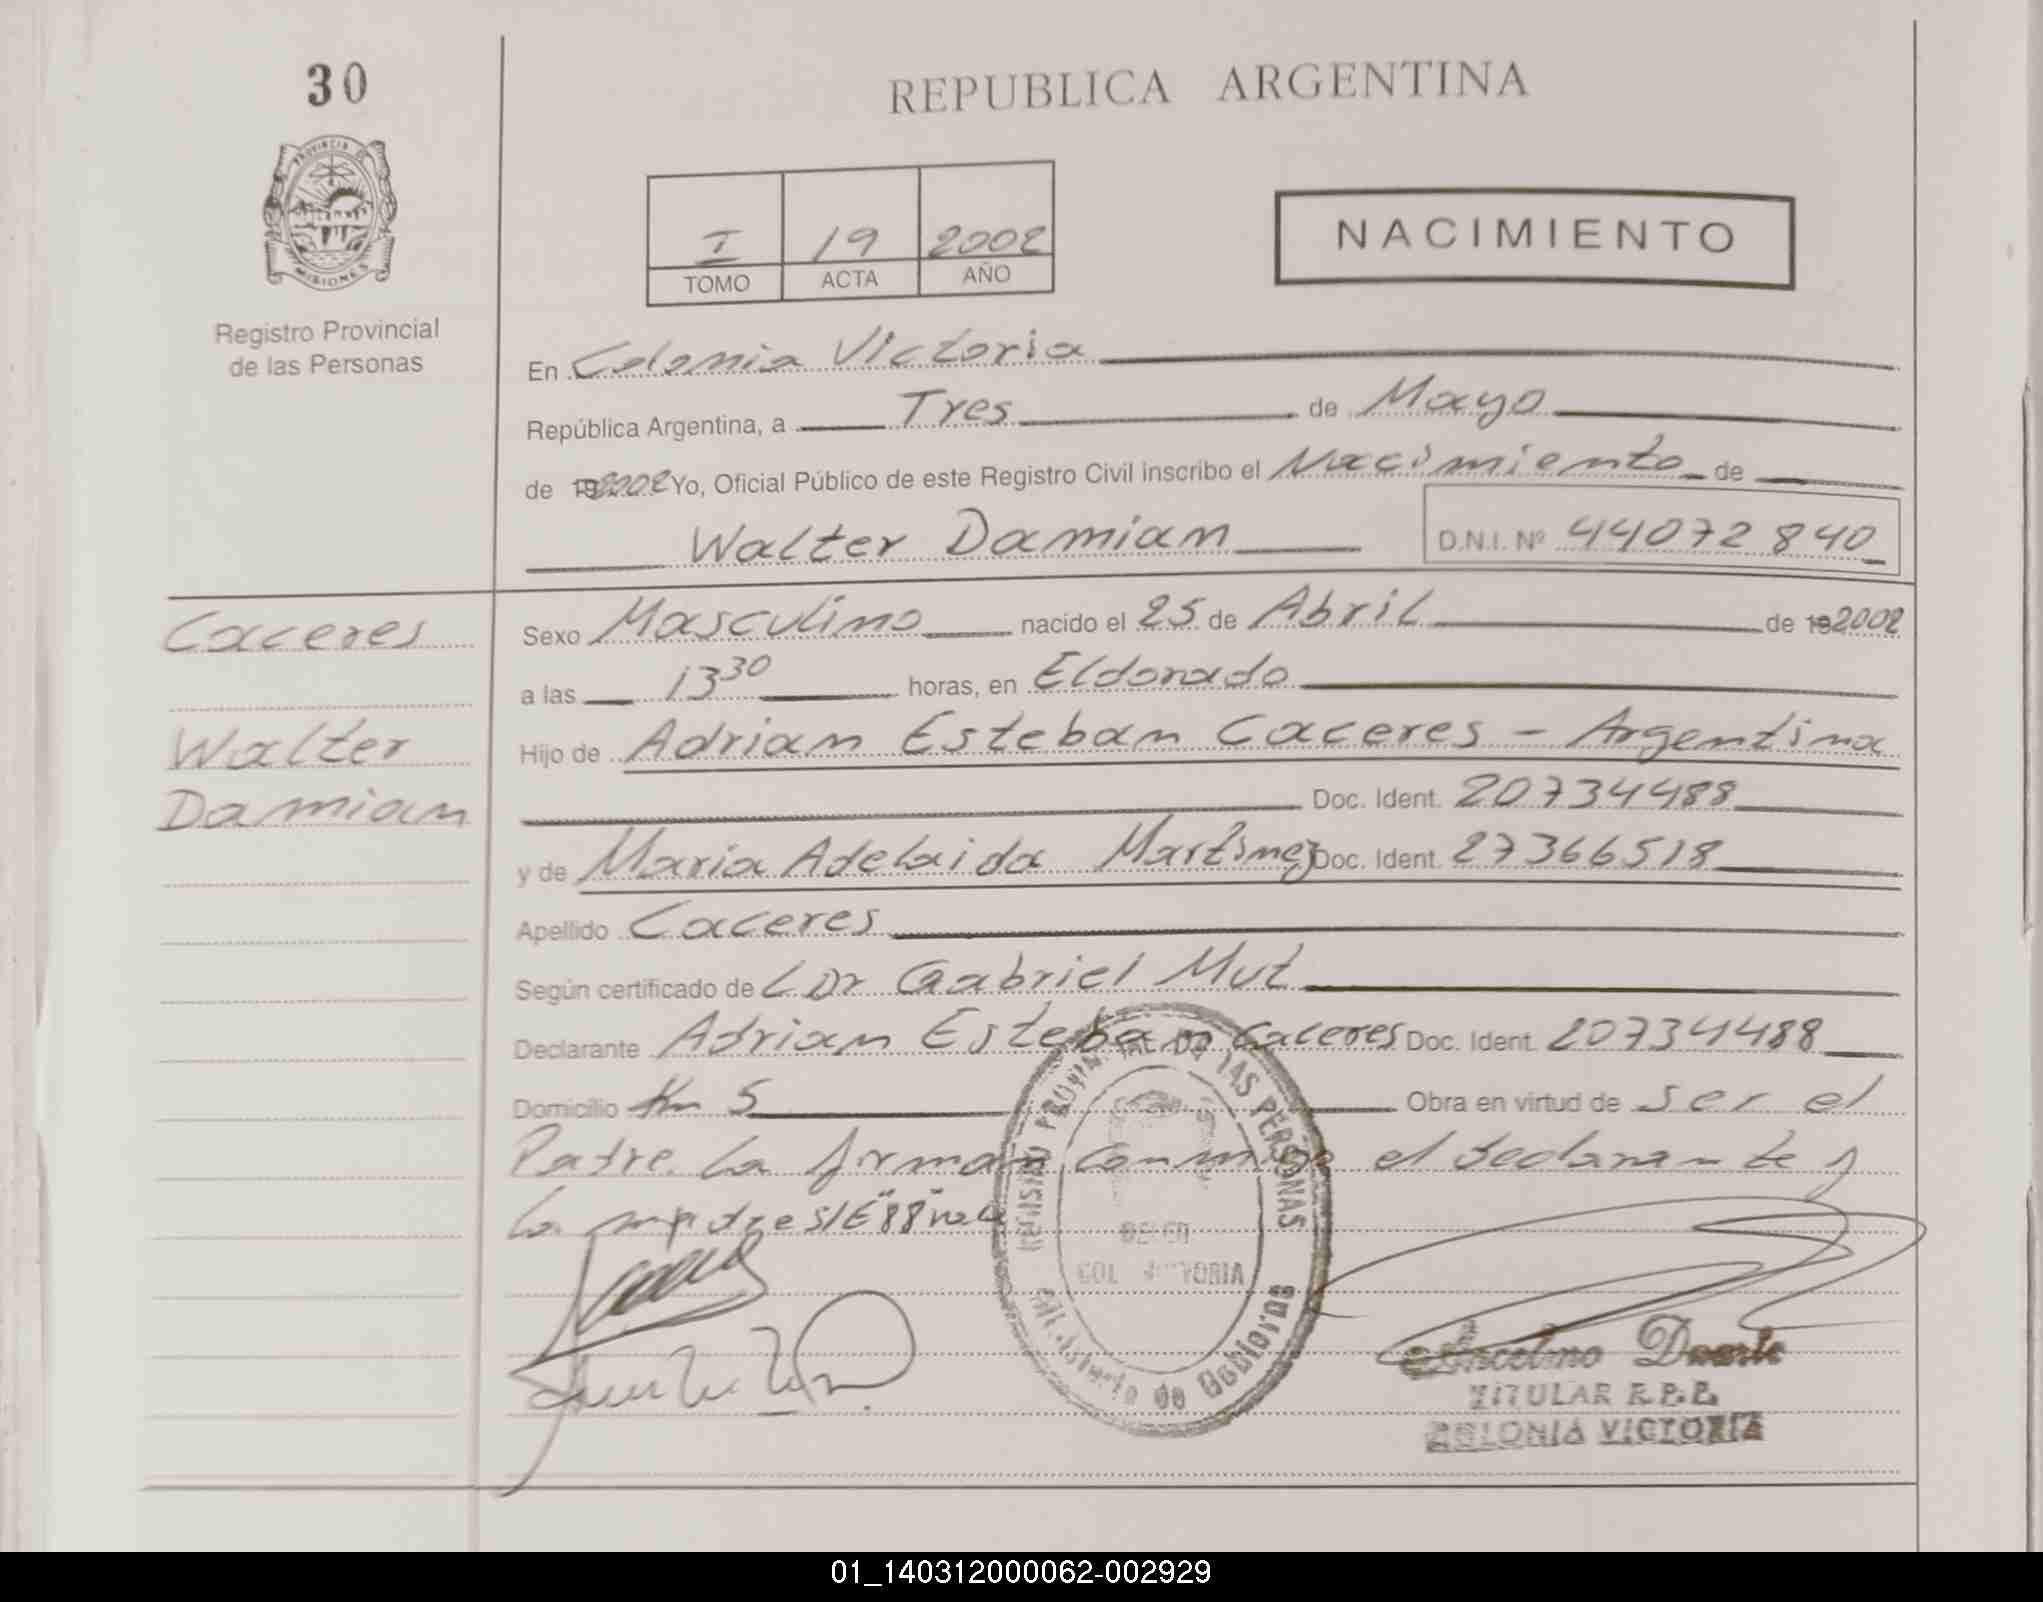 30
REPUBLICA ARGENTINA
PROVINCIA DE
MISIONES
Registro Provincial
de las Personas
I 19 2002
TOMO ACTA AÑO
NACIMIENTO
En Colonia Victoria
República Argentina, a Tres de Mayo
de 19 2002 Yo, Oficial Público de este Registro Civil inscribo el Nacimiento de
Walter Damian D.N.I. Nº 44072840
Caceres
Walter
Damian
Sexo Masculino nacido el 25 de Abril de 19 2002
a las 13 30 horas, en Eldorado
Hijo de Adrian Esteban Caceres - Argentina
Doc. Ident. 20734488
y de Maria Adelaida Martinez Doc. Ident. 27366518
Apellido Caceres
Según certificado de L Dr Gabriel Mut
Declarante Adrian Esteban Caceres Doc. Ident. 20734488
Domicilio Km 5 Obra en virtud de ser el
Padre. La firman conmigo el declarante y
la madre S/E "88" vale
PERSONAS
COL VICTORIA
de Gobierno
Duarte
TITULAR R.P.P.
COLONIA VICTORIA
01_140312000062-002929